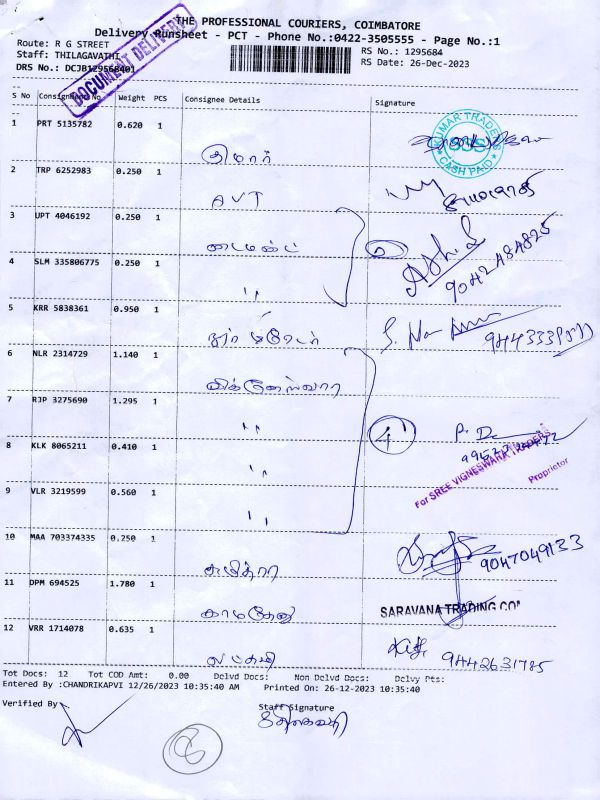 THE PROFESSIONAL COURIERS, COIMBATORE
Delivery Runsheet - PCT - Phone No.:0422-3505555 - Page No.:1
Route: R G STREET
RS No.: 1295684
Staff: THILAGAVATHI
RS Date: 26-Dec-2023
DRS No.: DCJB129568401
DOCUMENT DELIVERY
S No Consignment No. Weight PCS Consignee Details Signature
1 PRT 5135782 0.620 1 குமார்
KUMAR TRADERS CASH PAID
2 TRP 6252983 0.250 1 AVT
3 UPT 4046192 0.250 1 டைமண்ட் 2
4 SLM 335806775 0.250 1 "
5 KRR 5838361 0.950 1
6 NLR 2314729 1.140 1 விக்னேஸ்வரா
7 RJP 3275690 1.295 1 " 4
8 KLK 8065211 0.410 1 "
For SREE VIGNESWARA TRADERS
Proprietor
9 VLR 3219599 0.560 1 "
10 MAA 703374335 0.250 1 சுமித்ரா 9047049133
11 DPM 694525 1.780 1 காமதேனு
SARAVANA TRADING CO
12 VRR 1714078 0.635 1 லட்சுமி 9442631785
Tot Docs: 12 Tot COD Amt: 0.00 Delvd Docs: Non Delvd Docs: Delvy Pts:
Entered By :CHANDRIKAPVI 12/26/2023 10:35:40 AM Printed On: 26-12-2023 10:35:40
Verified By
Staff Signature
திலகவதி